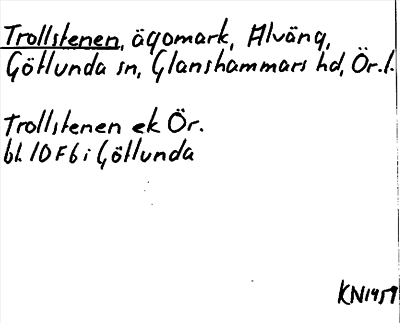 Trollstenen, ägomark, Älväng,
Götlunda sn, Glanshammars hd, Ör.l.
Trollstenen ek Ör.
bl. 10 F 6 i Götlunda
KN1959